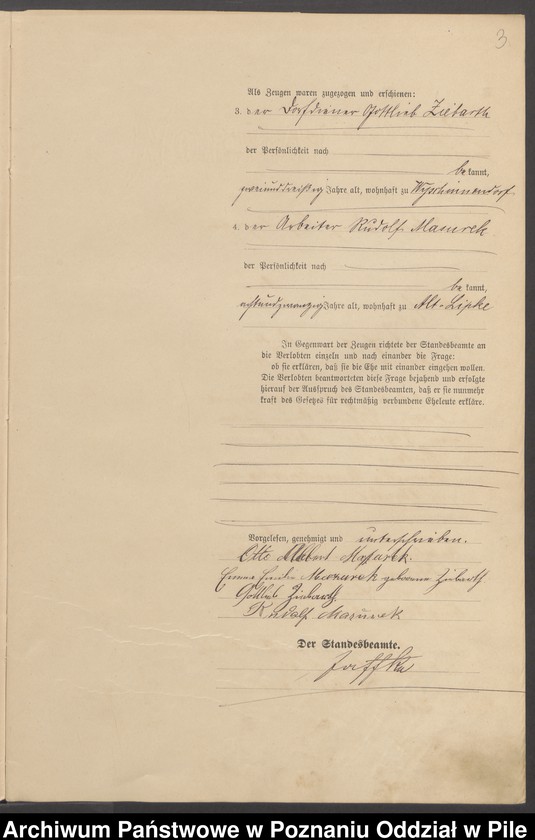 3
Als Zeugen waren zugezogen und erschienen:
3. der Dorfdiener Gottlieb Ziebarth
der Persönlichkeit nach
be kannt,
zweiunddreißig Jahre alt, wohnhaft zu
4. der Arbeiter Rudolf Masurek
der Persönlichkeit nach
be kannt,
achtundzwanzig Jahre alt, wohnhaft zu Alt-Lipke
In Gegenwart der Zeugen richtete der Standesbeamte an
die Verlobten einzeln und nach einander die Frage:
ob sie erklären, daß sie die Ehe mit einander eingehen wollen.
Die Verlobten beantworteten diese Frage bejahend und erfolgte
hierauf der Ausspruch des Standesbeamten, daß er sie nunmehr
kraft des Gesetzes für rechtmäßig verbundene Eheleute erkläre.
Vorgelesen, genehmigt und unterschrieben.
Otto Albert Masurek.
Masurek geborene Ziebarth
Gottlieb Ziebarth
Rudolf Masurek
Der Standesbeamte.
Archiwum Państwowe w Poznaniu Oddział w Pile